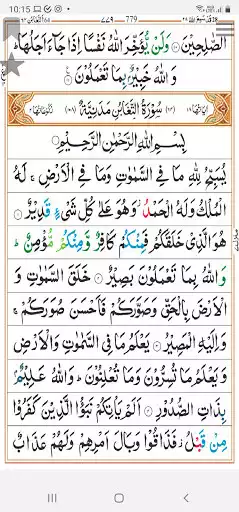 10:15
٤٤٩ 779
الصّٰلِحِيْنَ ۝ وَلَنْ يُّؤَخِّرَ اللّٰهُ نَفْسًا اِذَا جَآءَ اَجَلُهَا ؕ
وَ اللّٰهُ خَبِيْرٌۢ بِمَا تَعْمَلُوْنَ ۝
سُوْرَةُ التَّغَابُنِ مَدَنِيَّةٌ
بِسْمِ اللّٰهِ الرَّحْمٰنِ الرَّحِيْمِ
يُسَبِّحُ لِلّٰهِ مَا فِي السَّمٰوٰتِ وَمَا فِي الْاَرْضِ ۚ لَهُ
الْمُلْكُ وَلَهُ الْحَمْدُ ؗ وَهُوَ عَلٰى كُلِّ شَيْءٍ قَدِيْرٌ ۝
هُوَ الَّذِيْ خَلَقَكُمْ فَمِنْكُمْ كَافِرٌ وَّمِنْكُمْ مُّؤْمِنٌ ؕ
وَ اللّٰهُ بِمَا تَعْمَلُوْنَ بَصِيْرٌ ۝ خَلَقَ السَّمٰوٰتِ وَ
الْاَرْضَ بِالْحَقِّ وَصَوَّرَكُمْ فَاَحْسَنَ صُوَرَكُمْ ۚ
وَ اِلَيْهِ الْمَصِيْرُ ۝ يَعْلَمُ مَا فِي السَّمٰوٰتِ وَالْاَرْضِ
وَ يَعْلَمُ مَا تُسِرُّوْنَ وَمَا تُعْلِنُوْنَ ؕ وَ اللّٰهُ عَلِيْمٌۢ
بِذَاتِ الصُّدُوْرِ ۝ اَلَمْ يَاْتِكُمْ نَبَؤُا الَّذِيْنَ كَفَرُوْا
مِنْ قَبْلُ ؗ فَذَاقُوْا وَبَالَ اَمْرِهِمْ وَلَهُمْ عَذَابٌ